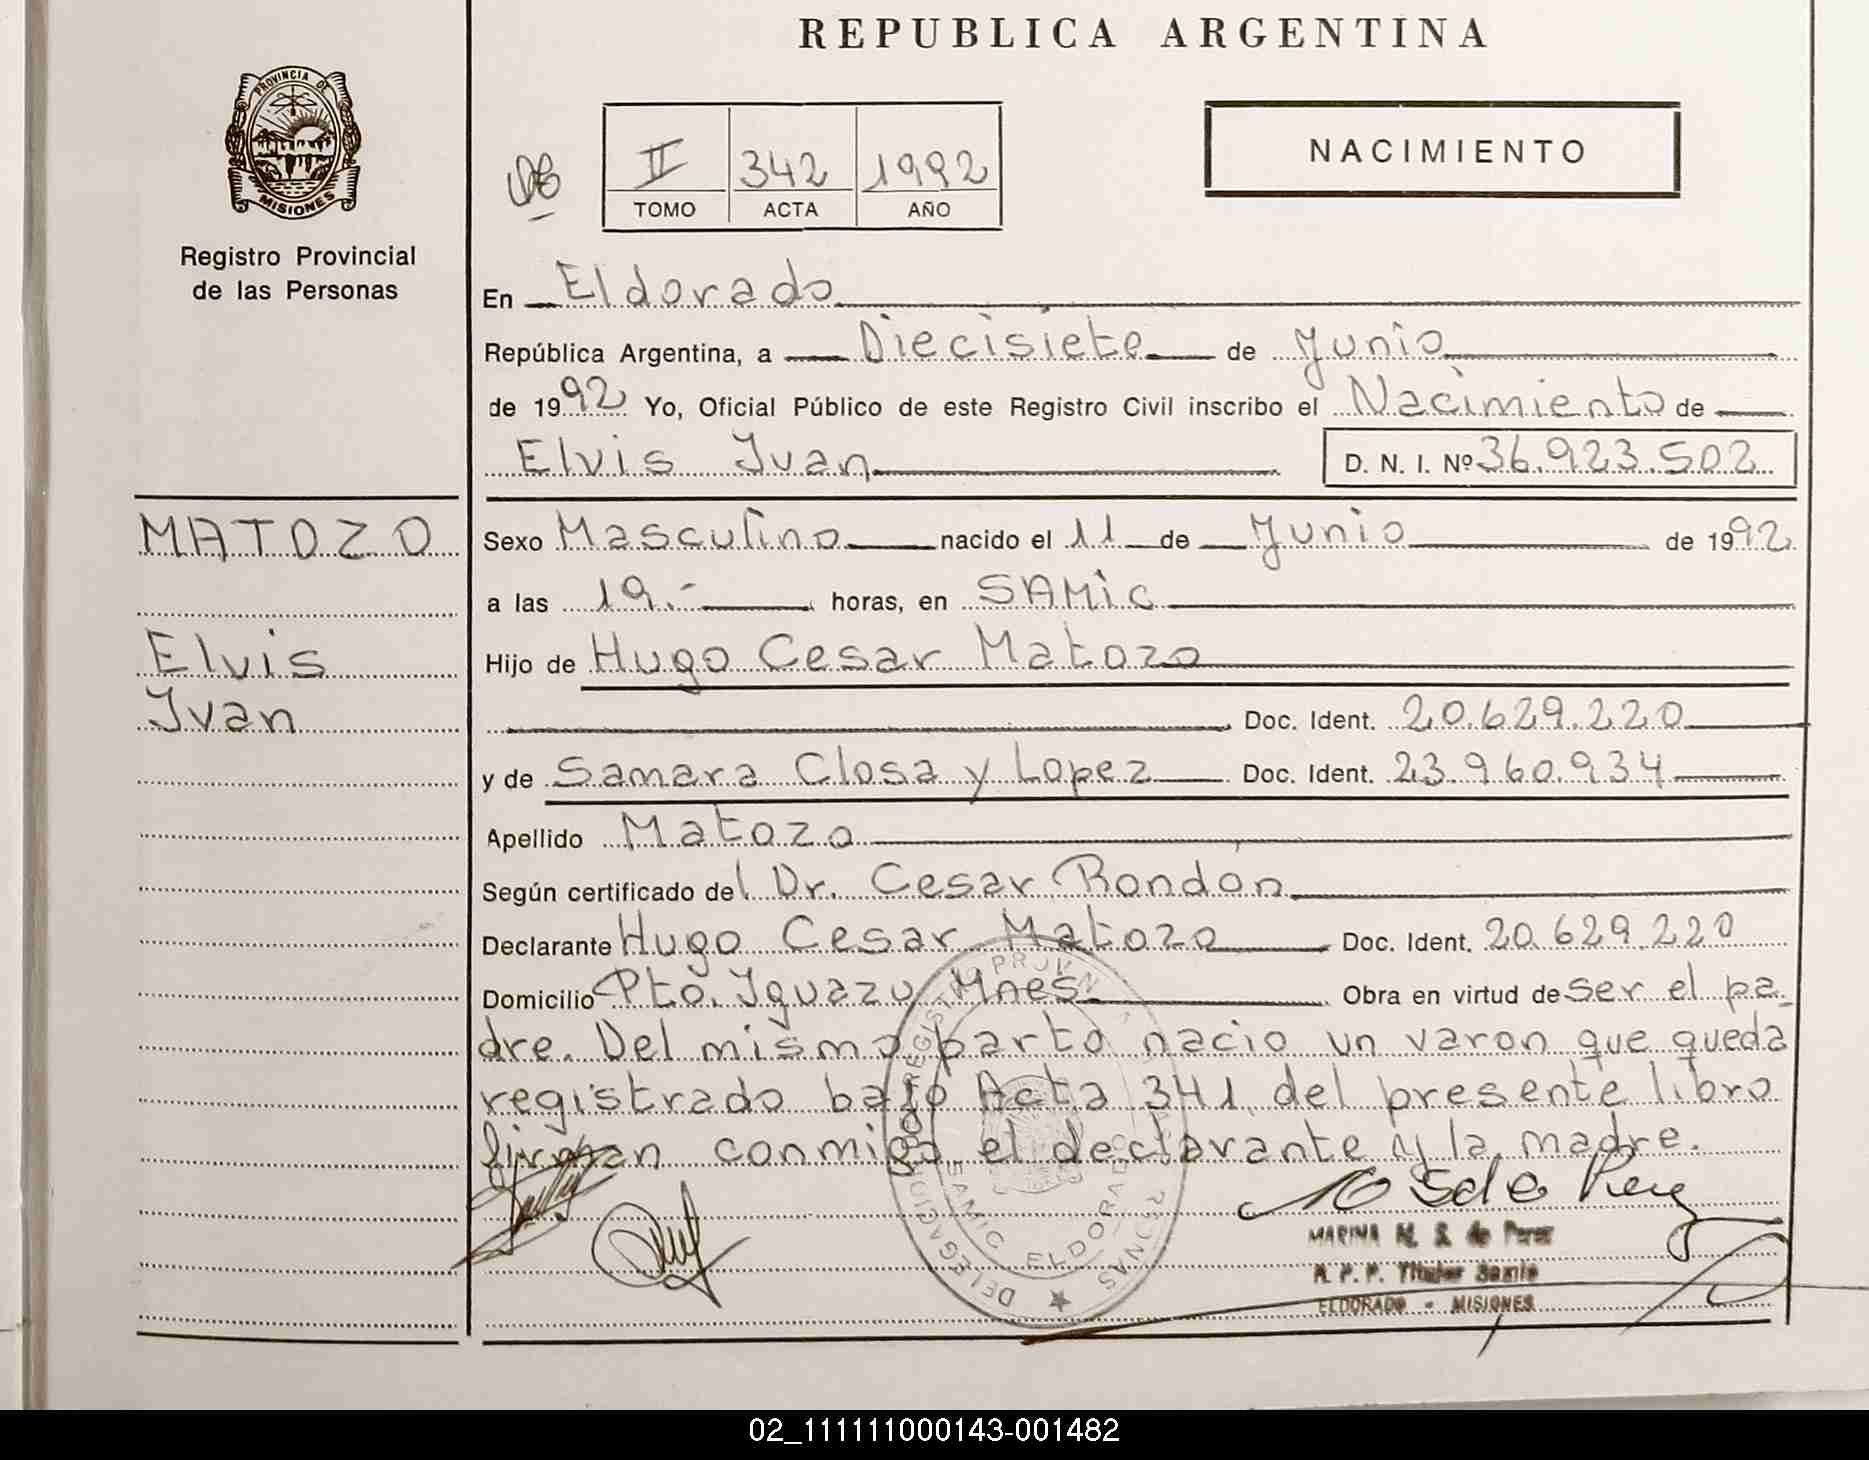 REPUBLICA ARGENTINA
PROVINCIA DE
MISIONES
Registro Provincial
de las Personas
II 342 1992
TOMO ACTA AÑO
NACIMIENTO
En Eldorado
República Argentina, a Diecisiete de Junio
de 1992 Yo, Oficial Público de este Registro Civil inscribo el Nacimiento de
Elvis Ivan D. N. I. Nº 36.923.502
MATOZO
Elvis
Ivan
Sexo Masculino nacido el 11 de Junio de 1992
a las 19.- horas, en SAMIC
Hijo de Hugo Cesar Matozo
Doc. Ident. 20.629.220
y de Samara Closa y Lopez Doc. Ident. 23.960.934
Apellido Matozo
Según certificado del Dr. Cesar Rondon
Declarante Hugo Cesar Matozo Doc. Ident. 20.629.220
Domicilio Pto. Iguazu Mnes. Obra en virtud de ser el pa-
dre. Del mismo parto nacio un varon que queda
registrado bajo Acta 341 del presente libro
firman conmigo el declarante y la madre.
MARINA M. S. de Perez
ELDORADO - MISIONES
SAMIC ELDORADO
02_111111000143-001482